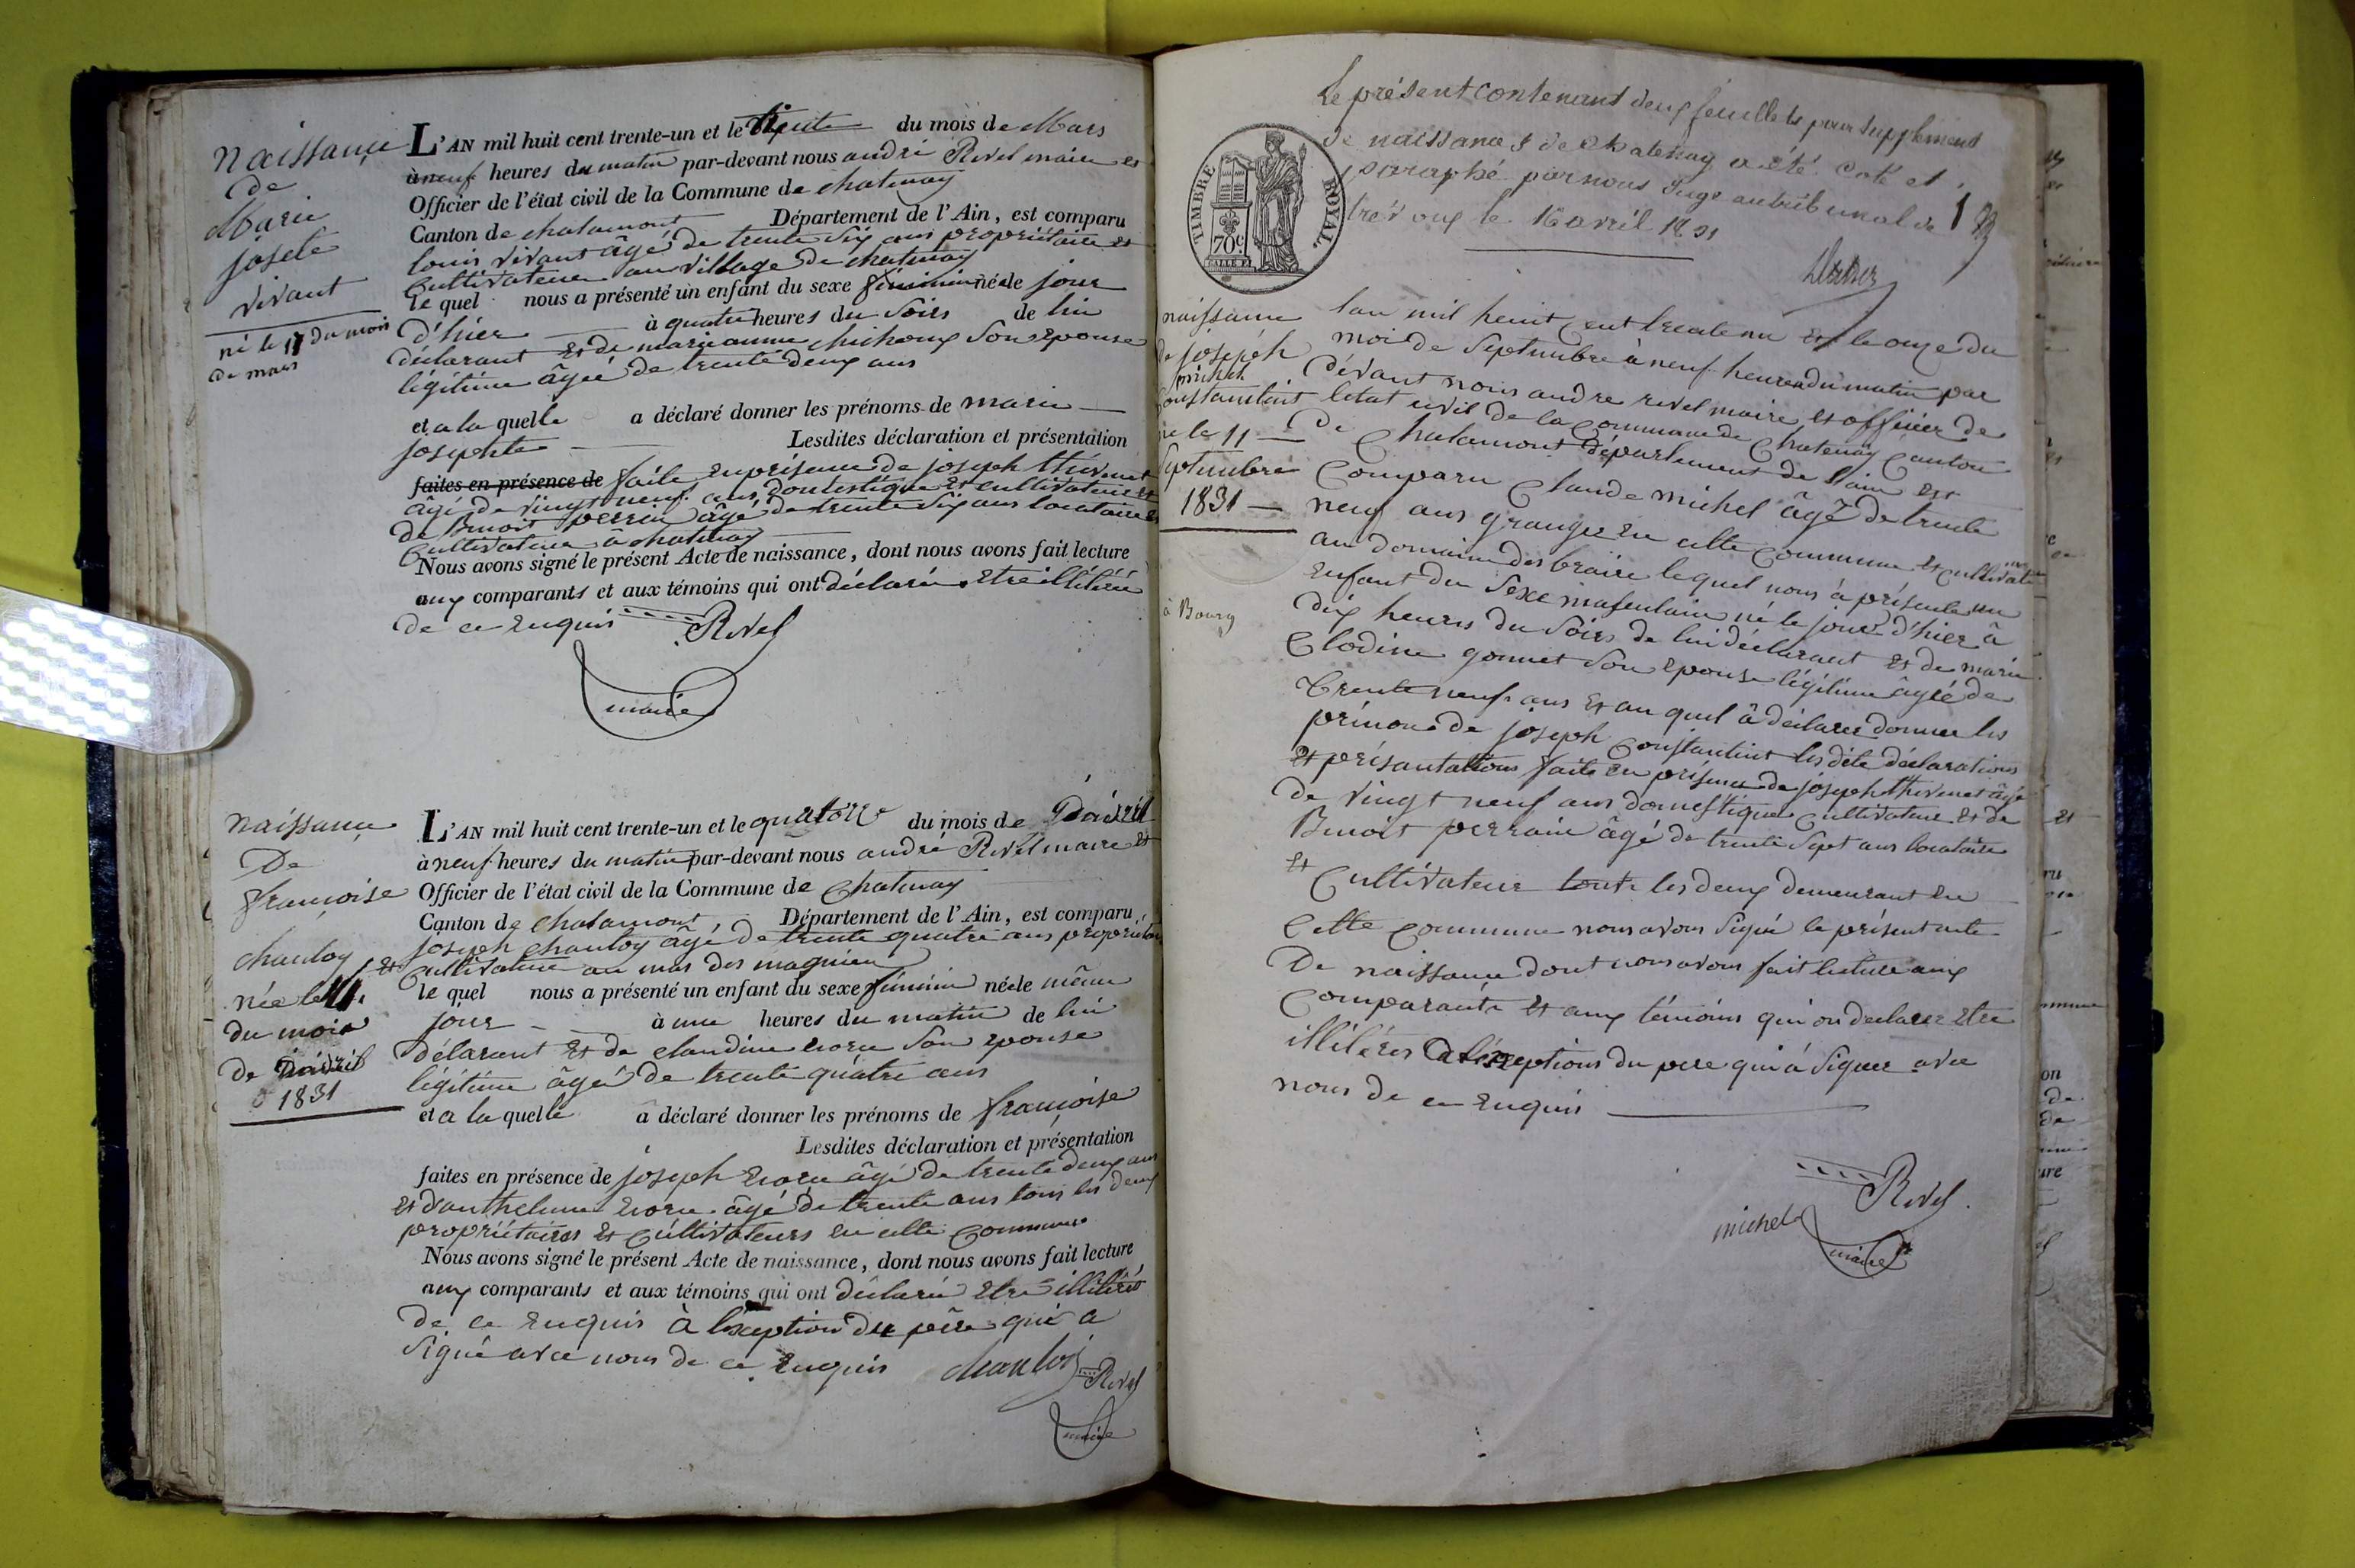 naissance
de
Marie
josete
vivant
né le 17 du mois
de mars
L'AN mil huit cent trente-un et le du mois de Mars
à neuf heures du matin par-devant nous andré Revel maire et
Officier de l'état civil de la Commune de chatenay
Canton de chalamont Département de l'Ain, est comparu
louis vivant âgé de trente six ans propriétaire et
cultivateur au village de chatenay
le quel nous a présenté un enfant du sexe féminin née le jour
d'hier à quatre heures du soirs de lui
déclarant et de marieanne son epouse
légitime âgée de trente deux ans
et a la quelle a déclaré donner les prénoms de marie
josephte Lesdites déclaration et présentation
faites en présence de faite en présence de joseph thivenet
âgé de vingt neuf ans domestique et cultivateur et
de Benoit perrin âgé de trente six ans locataire et
cultivateur à chatenay
Nous avons signé le présent Acte de naissance, dont nous avons fait lecture
aux comparants et aux témoins qui ont déclaré etre illitéré
de ce enquis Revel
maire
naissance
De
françoise
chanloy
née le 14
du mois
de
1831
L'AN mil huit cent trente-un et le quatorze du mois de D'avril
à neuf heures du matin par-devant nous andré Revel maire et
Officier de l'état civil de la Commune de chatenay
Canton de chalamont Département de l'Ain, est comparu
joseph chanloy âgé de trente quatre ans propriétaire
et cultivateur au mas des magnien
le quel nous a présenté un enfant du sexe féminin née le même
jour à une heures du matin de lui
délarant et de claudine son epouse
légitime âgée de trente quatre ans
et a la quelle a déclaré donner les prénoms de françoise
Lesdites déclaration et présentation
faites en présence de joseph âgé de trente deux ans
et d'anthelme âgé de trente ans tous les deux
propriétaires et cultivateurs en cette commune
Nous avons signé le présent Acte de naissance, dont nous avons fait lecture
aux comparants et aux témoins qui ont déclaré etre illitérés
de ce enquis à l'exception du père qui a
signé avec nous de ce enquis chanloy Revel
maire
Le présent contenant deux feuillets pour supplement
de naissances de Chatenay a été coté et
paraphé par nous Juge au tribunal de
trévoux le 16 avril 1831
TIMBRE ROYAL
70c
naissance
de joseph
michel
constantint
né le 11
septembre
1831
à Bourg
lan mil heuit cent trentenun et le onze du
moi de septembre à neuf heures du matin par
dévant nous andre revel maire et officier de
letat civil de la commune de chatenay canton
De chalamont département de lain est
comparu claude michel âgé de trente
neuf ans granger en cette commune et cultivateur
au domaine des braire lequel nous à présenté un
enfant du sexe masculain né le jour d'hier à
dix heures du soirs de lui déclarant et de marie
clodine gonnet son epouse légitime âgée de
trente neuf ans et au quel à déclarer donner les
prénoms de joseph constantint les dite déclarations
et présantations faite en présence de joseph thivenet âgé
de vingt neuf ans domestique cultivateur et de
Benoit perrain âgé de trente sept ans locataire
et cultivateur toute les deux demeurant en
cette commune nous avons signé le présent acte
De naissance dont nous avons fait lecture aux
comparants et aux témoins qui on declarer etre
illitérés à lexceptions du pere qui à signer avec
nous de ce enquis
michel Revel
maire